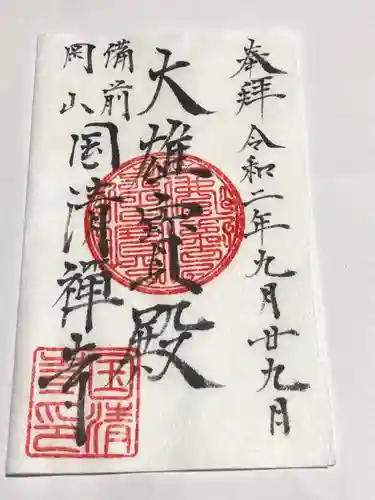 奉拝 令和二年九月廿九日
大雄寳殿
備前
岡山
国清禅寺
国清
寺印